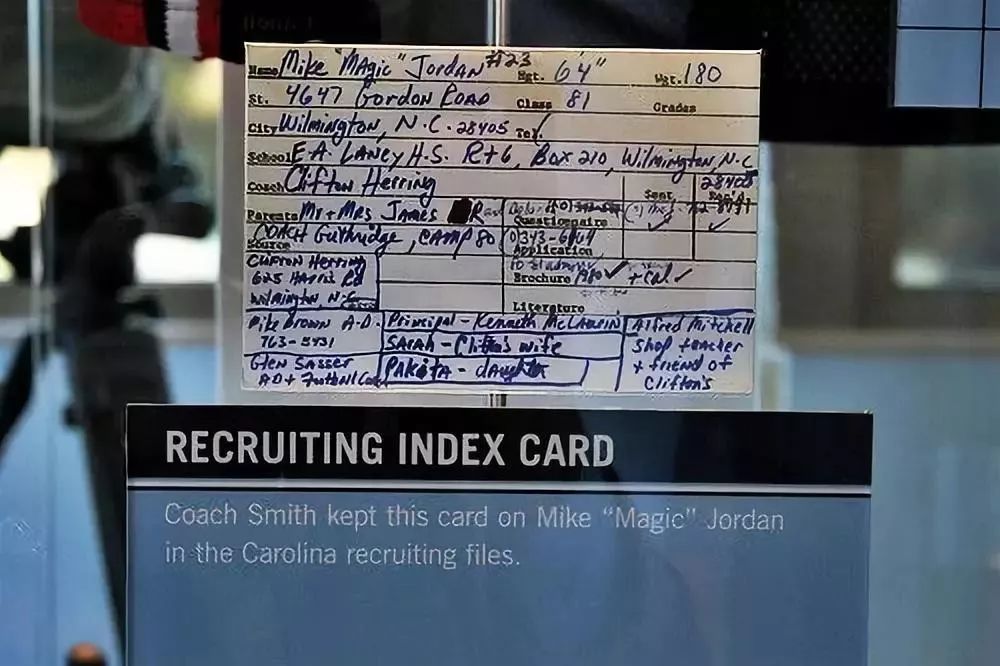 Name Mike "Magic" Jordan #23 Hgt. 6'4" Wgt. 180
St. 4647 Gordon Road Class 81 Grades
City Wilmington, N.C. 28405 Tel.
School E.A. Laney H.S. Rt 6, Box 210, Wilmington, N.C.
28405
Coach Clifton Herring Sent
Parents Mr + Mrs James R
Questionnaire
Source Coach Guthridge, Camp 80
Application
Clifton Herring
Rd Brochure + Cal ✓
Wilmington N.C.
Literature
Mike Brown A-D. Principal - Kenneth McLaurin Alfred Mitchell
763-5431 Sarah - Clifton's wife shop teacher
Glen Sasser Pakita - daughter + friend of
A.D + Football Coach Clifton's
RECRUITING INDEX CARD
Coach Smith kept this card on Mike "Magic" Jordan
in the Carolina recruiting files.